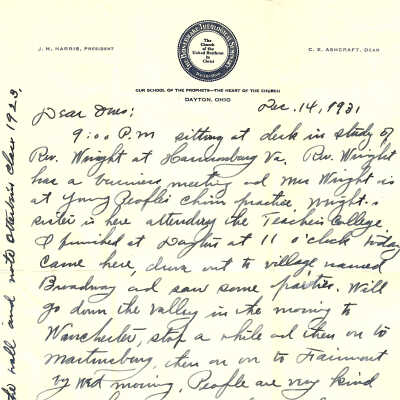 J. H. HARRIS, PRESIDENT
THE BONEBRAKE THEOLOGICAL SEMINARY
The Church
of the
United Brethren
in
Christ
C. E. ASHCRAFT, DEAN
OUR SCHOOL OF THE PROPHETS—THE HEART OF THE CHURCH
DAYTON, OHIO
Dec. 14, 1931
Dear Ones:
9:00 P.M sitting at desk in study of
Rev. Wright at Harrisonburg Va. Rev. Wright
has a business meeting and Mrs Wright is
at Young People's Choir practice. Wright's
sister is here attending the Teachers College.
I finished at Dayton at 11 o'clock today
came here, drove out to village named
Broadway and saw some parties. Will
go down the valley in the morning to
Winchester, stop a while and then on to
Martinsburg, then on to Fairmont
by Wed morning. People are very kind
the wall and note Otterbein class 1923,